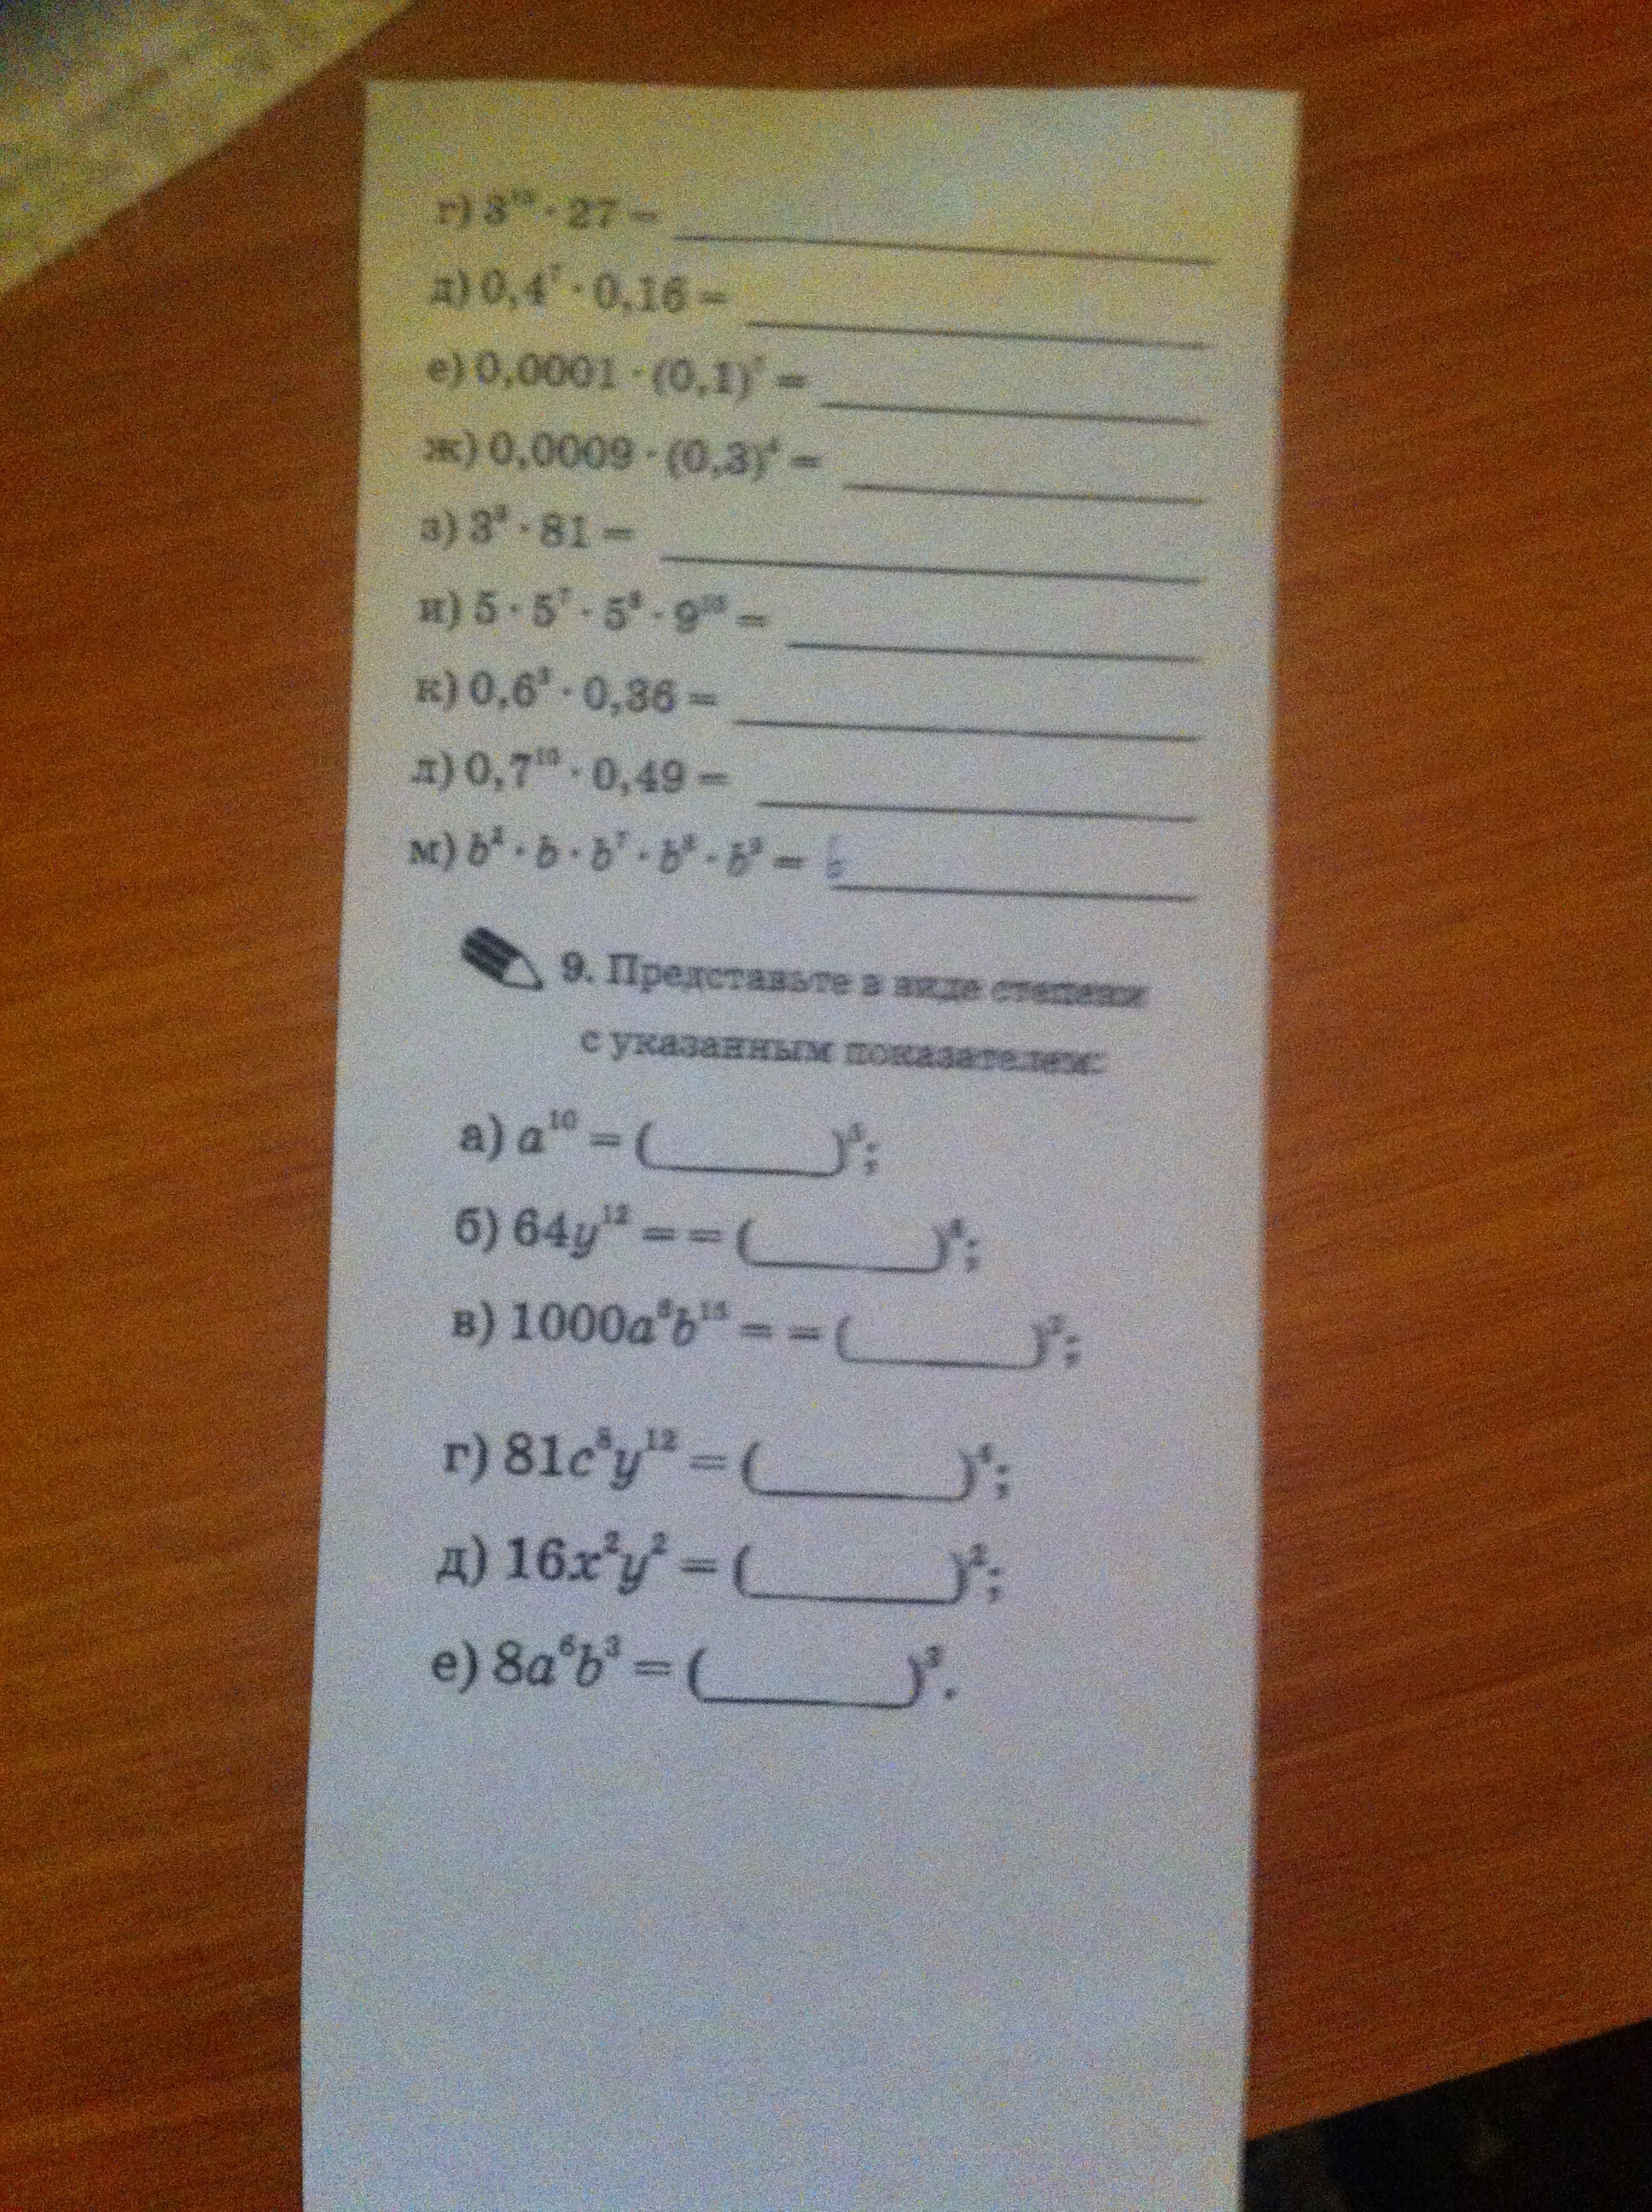 г) 3¹⁰ · 27 =
д) 0,4⁷ · 0,16 =
е) 0,0001 · (0,1) =
ж) 0,0009 · (0,3)⁴ =
з) 3³ · 81 =
и) 5 · 5⁷ · 5⁸ · 9¹⁰ =
к) 0,6³ · 0,36 =
л) 0,7¹⁰ · 0,49 =
м) b² · b · b⁷ · b⁸ · b³ = b
9. Представьте в виде степени
с указанным показателем:
а) a¹⁰ = ( )⁵;
б) 64y¹² = = ( ) ;
в) 1000a b¹⁵ = = ( )³;
г) 81c⁸y¹² = ( )⁴;
д) 16x²y² = ( )²;
е) 8a⁶b³ = ( )³.